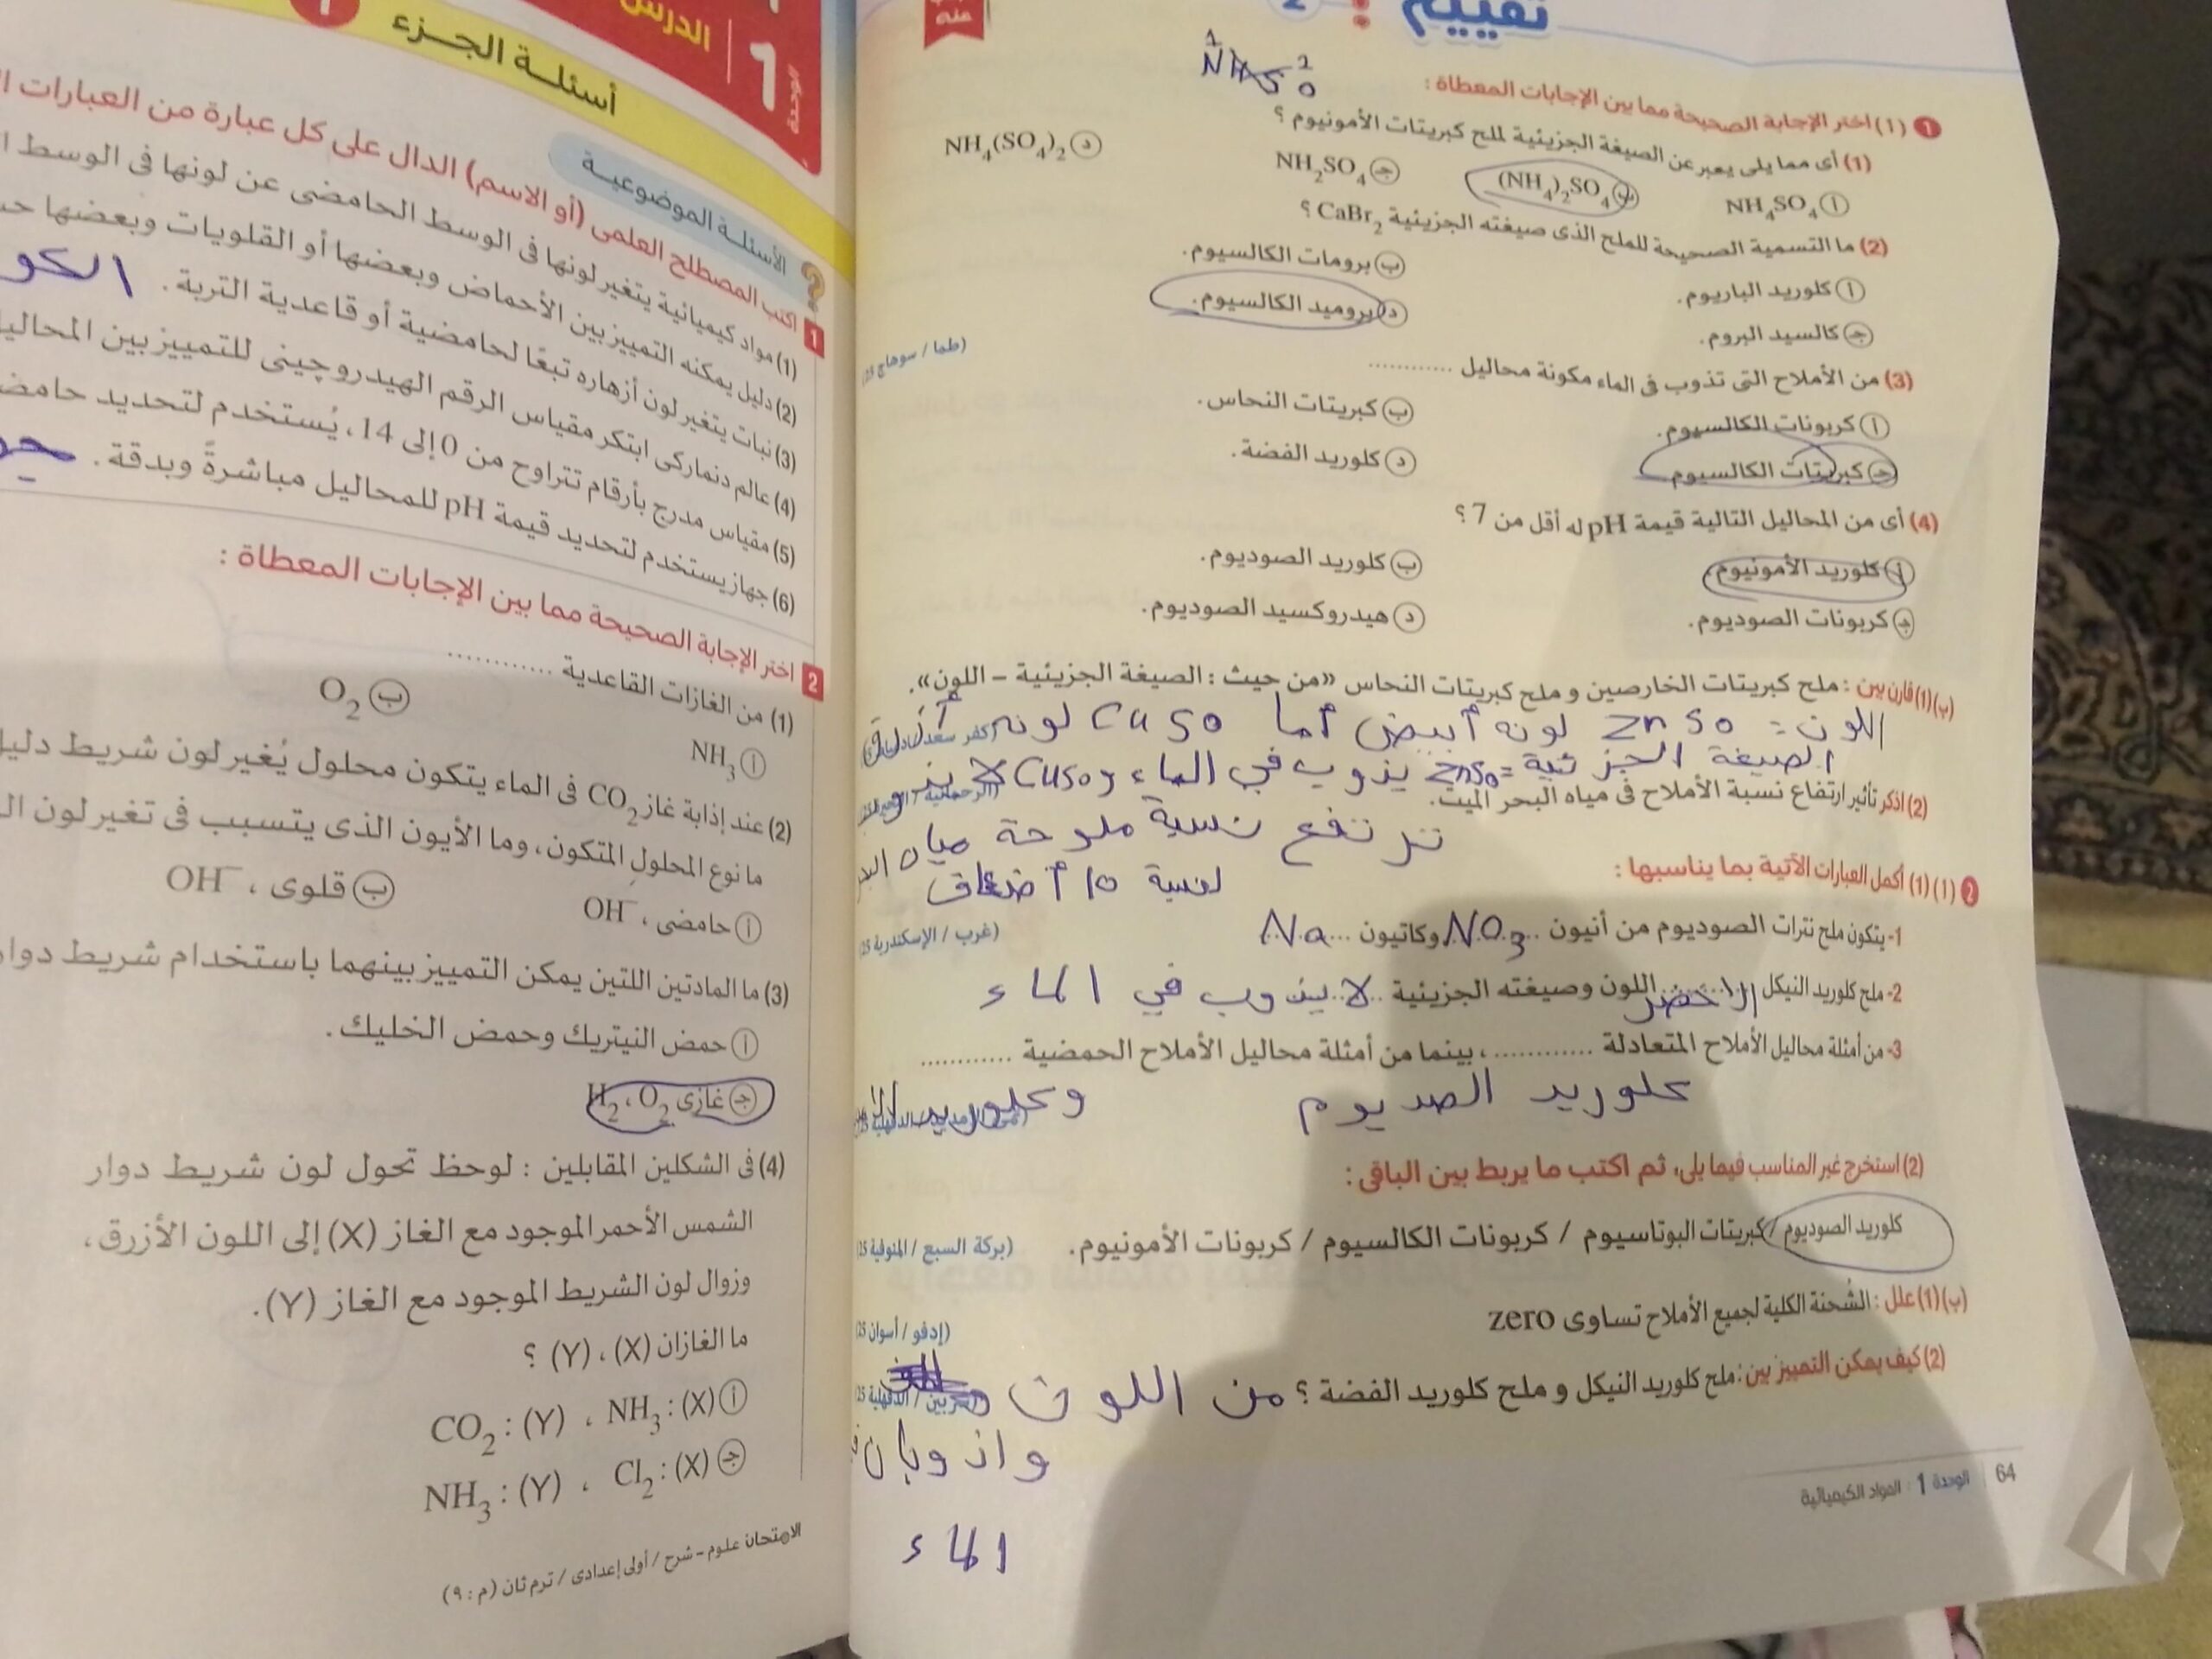 تقييم 2
منه
NH4SO
1 (1) اختر الإجابة الصحيحة مما بين الإجابات المعطاة :
(1) أى مما يلى يعبر عن الصيغة الجزيئية لملح كبريتات الأمونيوم ؟
أ NH₄SO₄ ب (NH₄)₂SO₄ ج NH₂SO₄ د NH₄(SO₄)₂
(2) ما التسمية الصحيحة للملح الذى صيغته الجزيئية CaBr₂ ؟
أ كلوريد الباريوم. ب برومات الكالسيوم.
ج كالسيد البروم. د بروميد الكالسيوم.
(3) من الأملاح التى تذوب فى الماء مكونة محاليل ............ (طما / سوهاج 25)
أ كربونات الكالسيوم. ب كبريتات النحاس.
ج كبريتات الكالسيوم د كلوريد الفضة.
(4) أى من المحاليل التالية قيمة pH له أقل من 7 ؟
أ كلوريد الأمونيوم. ب كلوريد الصوديوم.
ج كربونات الصوديوم. د هيدروكسيد الصوديوم.
(ب) (1) قارن بين : ملح كبريتات الخارصين و ملح كبريتات النحاس «من حيث : الصيغة الجزيئية – اللون».
اللون = ZnSo لونه أبيض أما CuSo لونه أزرق
الصيغة الجزئية = ZnSo يذوب في الماء و CuSo لا يذو
(2) اذكر تأثير ارتفاع نسبة الأملاح فى مياه البحر الميت.
ترتفع نسبة ملوحة مياه
لنسبة 10 أضعاف
2 (1) (1) أكمل العبارات الآتية بما يناسبها :
1- يتكون ملح نترات الصوديوم من أنيون NO₃ وكاتيون Na (غرب / الإسكندرية 25)
2- ملح كلوريد النيكل الاخضر اللون وصيغته الجزيئية لا يذوب في الماء
3- من أمثلة محاليل الأملاح المتعادلة ............ ، بينما من أمثلة محاليل الأملاح الحمضية ............
كلوريد الصديوم وكلوريد
(2) استخرج غير المناسب فيما يلى، ثم اكتب ما يربط بين الباقى :
كلوريد الصوديوم / كبريتات البوتاسيوم / كربونات الكالسيوم / كربونات الأمونيوم. (بركة السبع / المنوفية 25)
(ب) (1) علل : الشحنة الكلية لجميع الأملاح تساوى zero (إدفو / أسوان 25)
(2) كيف يمكن التمييز بين : ملح كلوريد النيكل و ملح كلوريد الفضة ؟ من اللون
واذوبان
الماء
64 الوحدة 1 : المواد الكيميائية
الوحدة 1 الدرس
أسئلة الجزء 1
الأسئلة الموضوعية
1 اكتب المصطلح العلمى (أو الاسم) الدال على كل عبارة من العبارات
(1) مواد كيميائية يتغير لونها فى الوسط الحامضى عن لونها فى الوسط
(2) دليل يمكنه التمييز بين الأحماض وبعضها أو القلويات وبعضها
(3) نبات يتغير لون أزهاره تبعًا لحامضية أو قاعدية التربة. الكو
(4) عالم دنماركى ابتكر مقياس الرقم الهيدروچينى للتمييز بين المحاليل
(5) مقياس مدرج بأرقام تتراوح من 0 إلى 14، يُستخدم لتحديد
(6) جهاز يستخدم لتحديد قيمة pH للمحاليل مباشرةً وبدقة.
2 اختر الإجابة الصحيحة مما بين الإجابات المعطاة :
(1) من الغازات القاعدية ............
أ NH₃ ب O₂
(2) عند إذابة غاز CO₂ فى الماء يتكون محلول يُغير لون شريط
ما نوع المحلول المتكون، وما الأيون الذى يتسبب فى تغير لون
أ حامضى ، OH⁻ ب قلوى ، OH⁻
(3) ما المادتين اللتين يمكن التمييز بينهما باستخدام شريط دوار
أ حمض النيتريك وحمض الخليك.
ج غازى H₂ ، O₂
(4) فى الشكلين المقابلين : لوحظ تحول لون شريط دوار
الشمس الأحمر الموجود مع الغاز (X) إلى اللون الأزرق،
وزوال لون الشريط الموجود مع الغاز (Y).
ما الغازان (X) ، (Y) ؟
أ (X) : NH₃ ، (Y) : CO₂
ج (X) : Cl₂ ، (Y) : NH₃
الامتحان علوم – شرح / أولى إعدادى / ترم ثان (م : ٩)